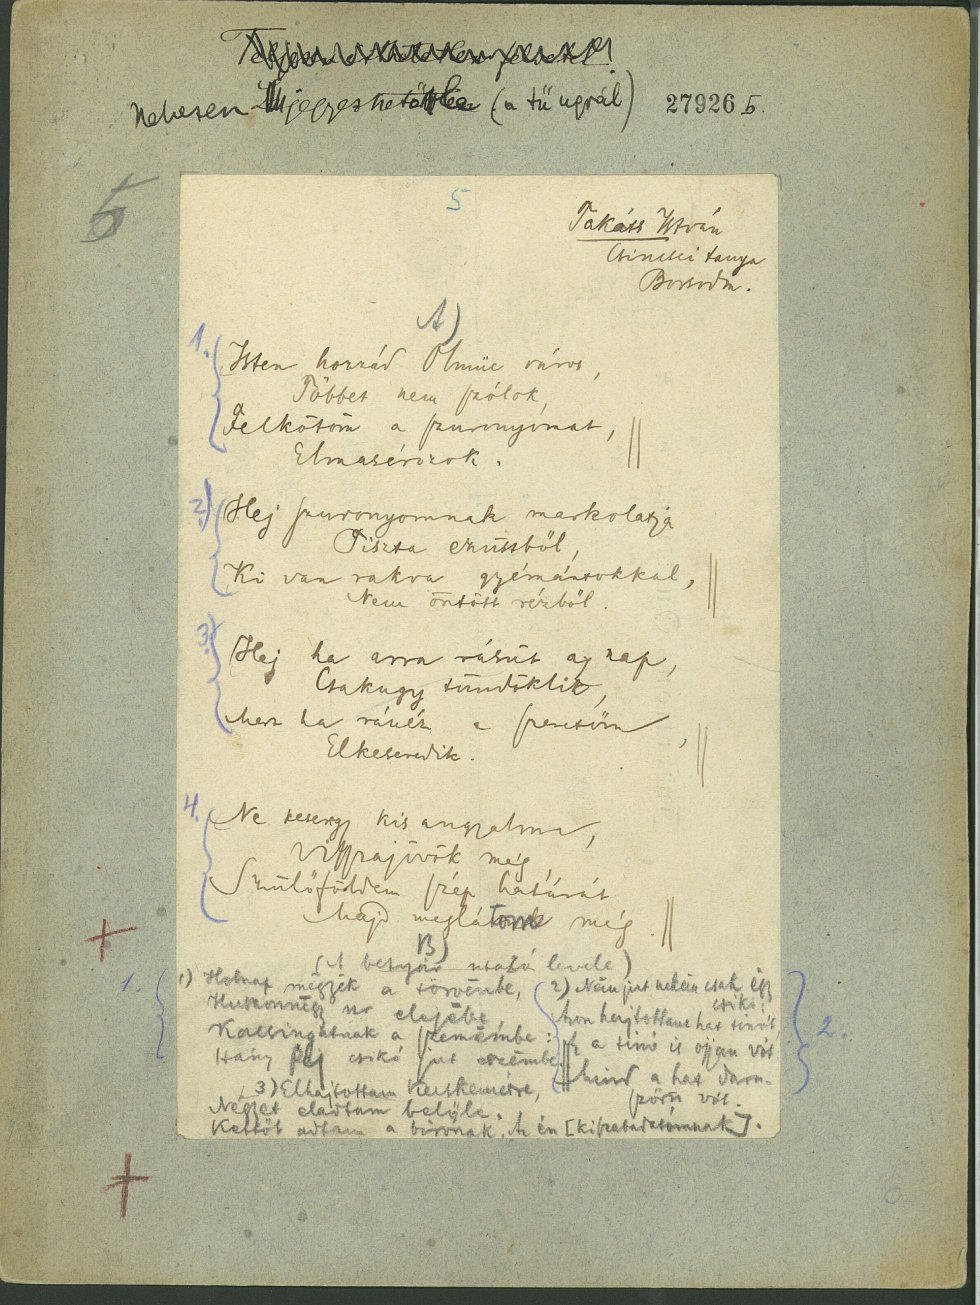 Nehezen jegyezhető le (a tű ugrál) 27926 b.
5
5
Takáts István
Csincsei tanya
Borsodm.
A)
1. Isten hozzád Olmüc város,
Többet nem szólok,
Felkötöm a szuronyomat,
Elmasérozok.
2) Hej szuronyomnak markolatja
Tiszta ezüstből,
Ki van rakva gyémántokkal,
Nem öntött rézből.
3) Hej ha arra rásüt a nap,
Csakugy tündöklik,
Mer ha ránéz a szeretőm,
Elkeseredik.
4. Ne keseregj kis angyalom,
Visszajövök még,
Szülőföldem szép határát
Majd meglátom még.
B)
(A betyár utolsó levele)
1. 1) Holnap mégyék a törvénbe,
Huszonnégy ur elejébe,
Kacsingatnak a szemémbe:
Hány fej csikó jut eszémbe.
2) Nem jut nekem csak égy
csikó;
Azon hajtottam hat tinót 2.
Ez a tinó is ojjan vót
Mind a hat daru-
szőrű vót.
3) Elhajtottam Kecskemétre,
Négyet eladtam belőle.
Kettőt adtam a bírónak, Az én [kiszabadítómnak].